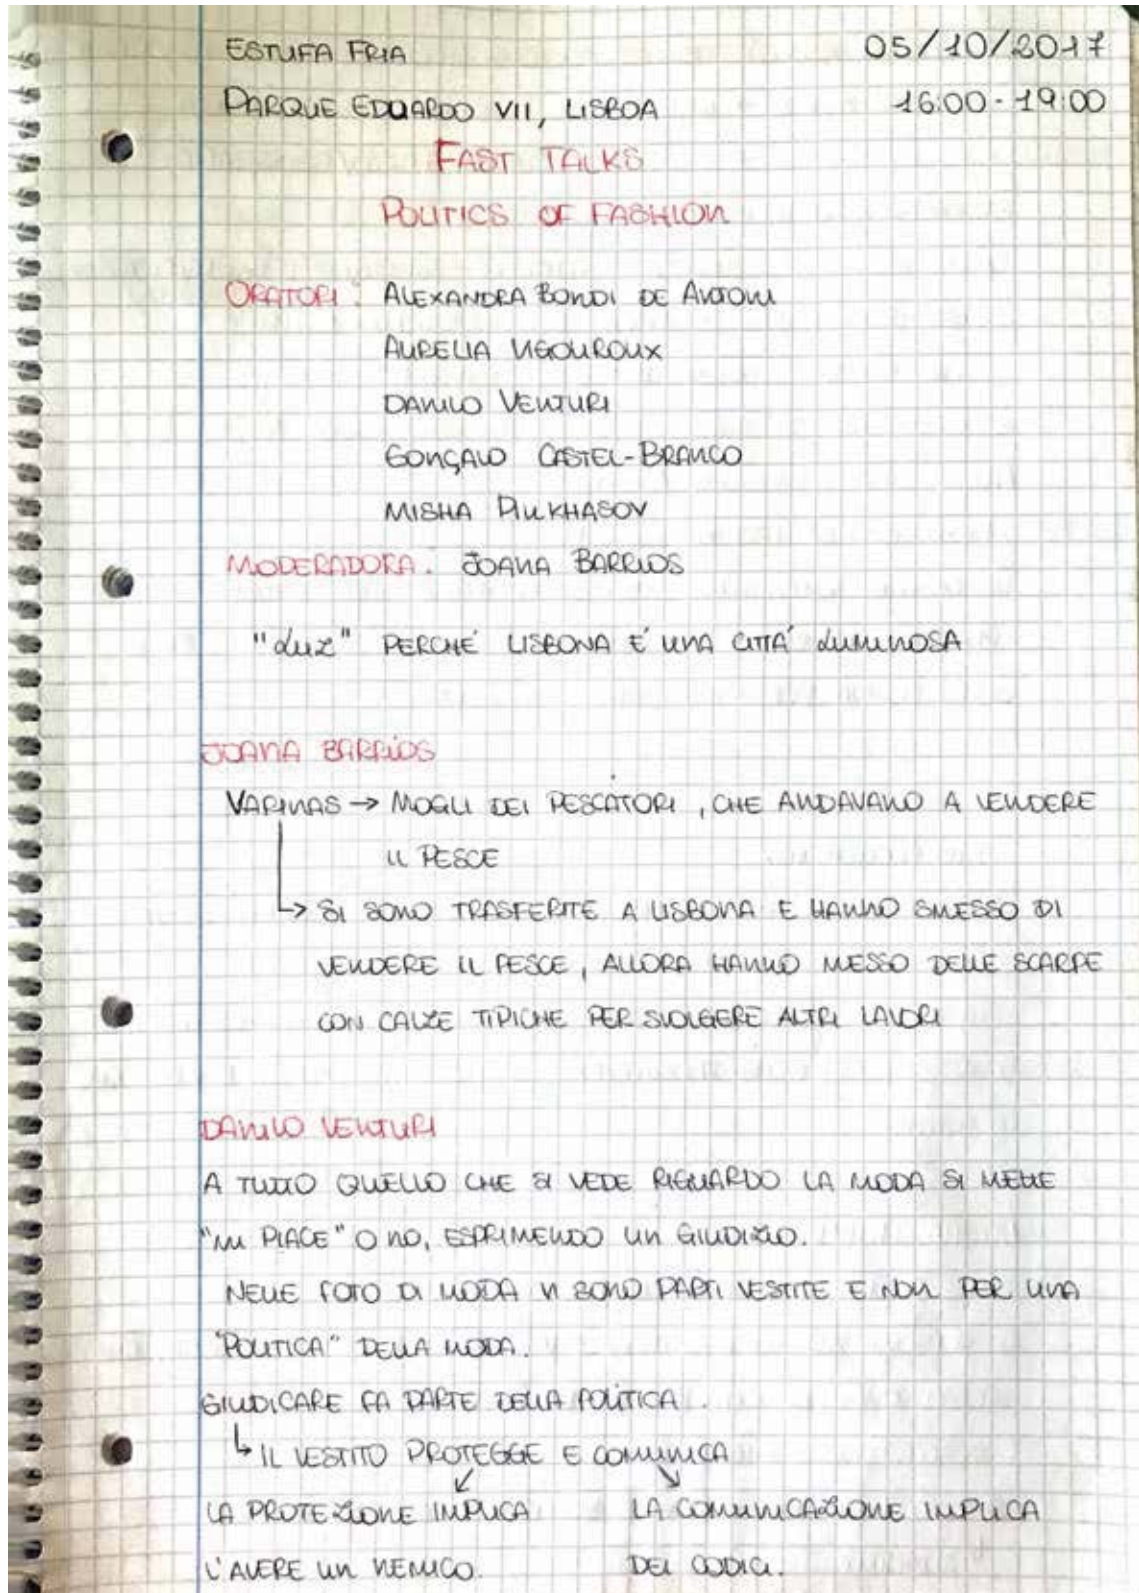 ESTUFA FRIA 05/10/2017
PARQUE EDUARDO VII, LISBOA 16:00-19:00
FAST TALKS
POLITICS OF FASHION
ORATORI: ALEXANDRA BONDI DE ANTONI
AURELIA VIGOUROUX
DANILO VENTURI
GONÇALO CASTEL-BRANCO
MISHA PINKHASOV
MODERADORA: JOANA BARRIOS
"LUZ" PERCHÉ LISBONA É UNA CITTÁ LUMINOSA
JOANA BARRIOS
VARINAS → MOGLI DEI PESCATORI, CHE ANDAVANO A VENDERE
IL PESCE
↳ SI SONO TRASFERITE A LISBONA E HANNO SMESSO DI
VENDERE IL PESCE, ALLORA HANNO MESSO DELLE SCARPE
CON CALZE TIPICHE PER SVOLGERE ALTRI LAVORI
DANILO VENTURI
A TUTTO QUELLO CHE SI VEDE RIGUARDO LA MODA SI METTE
"MI PIACE" O NO, ESPRIMENDO UN GIUDIZIO.
NELLE FOTO DI MODA VI SONO PARTI VESTITE E NON PER UNA
"POLITICA" DELLA MODA.
GIUDICARE FA PARTE DELLA POLITICA.
↳ IL VESTITO PROTEGGE E COMUNICA
↙ ↘
LA PROTEZIONE IMPLICA LA COMUNICAZIONE IMPLICA
L'AVERE UN NEMICO. DEI CODICI.